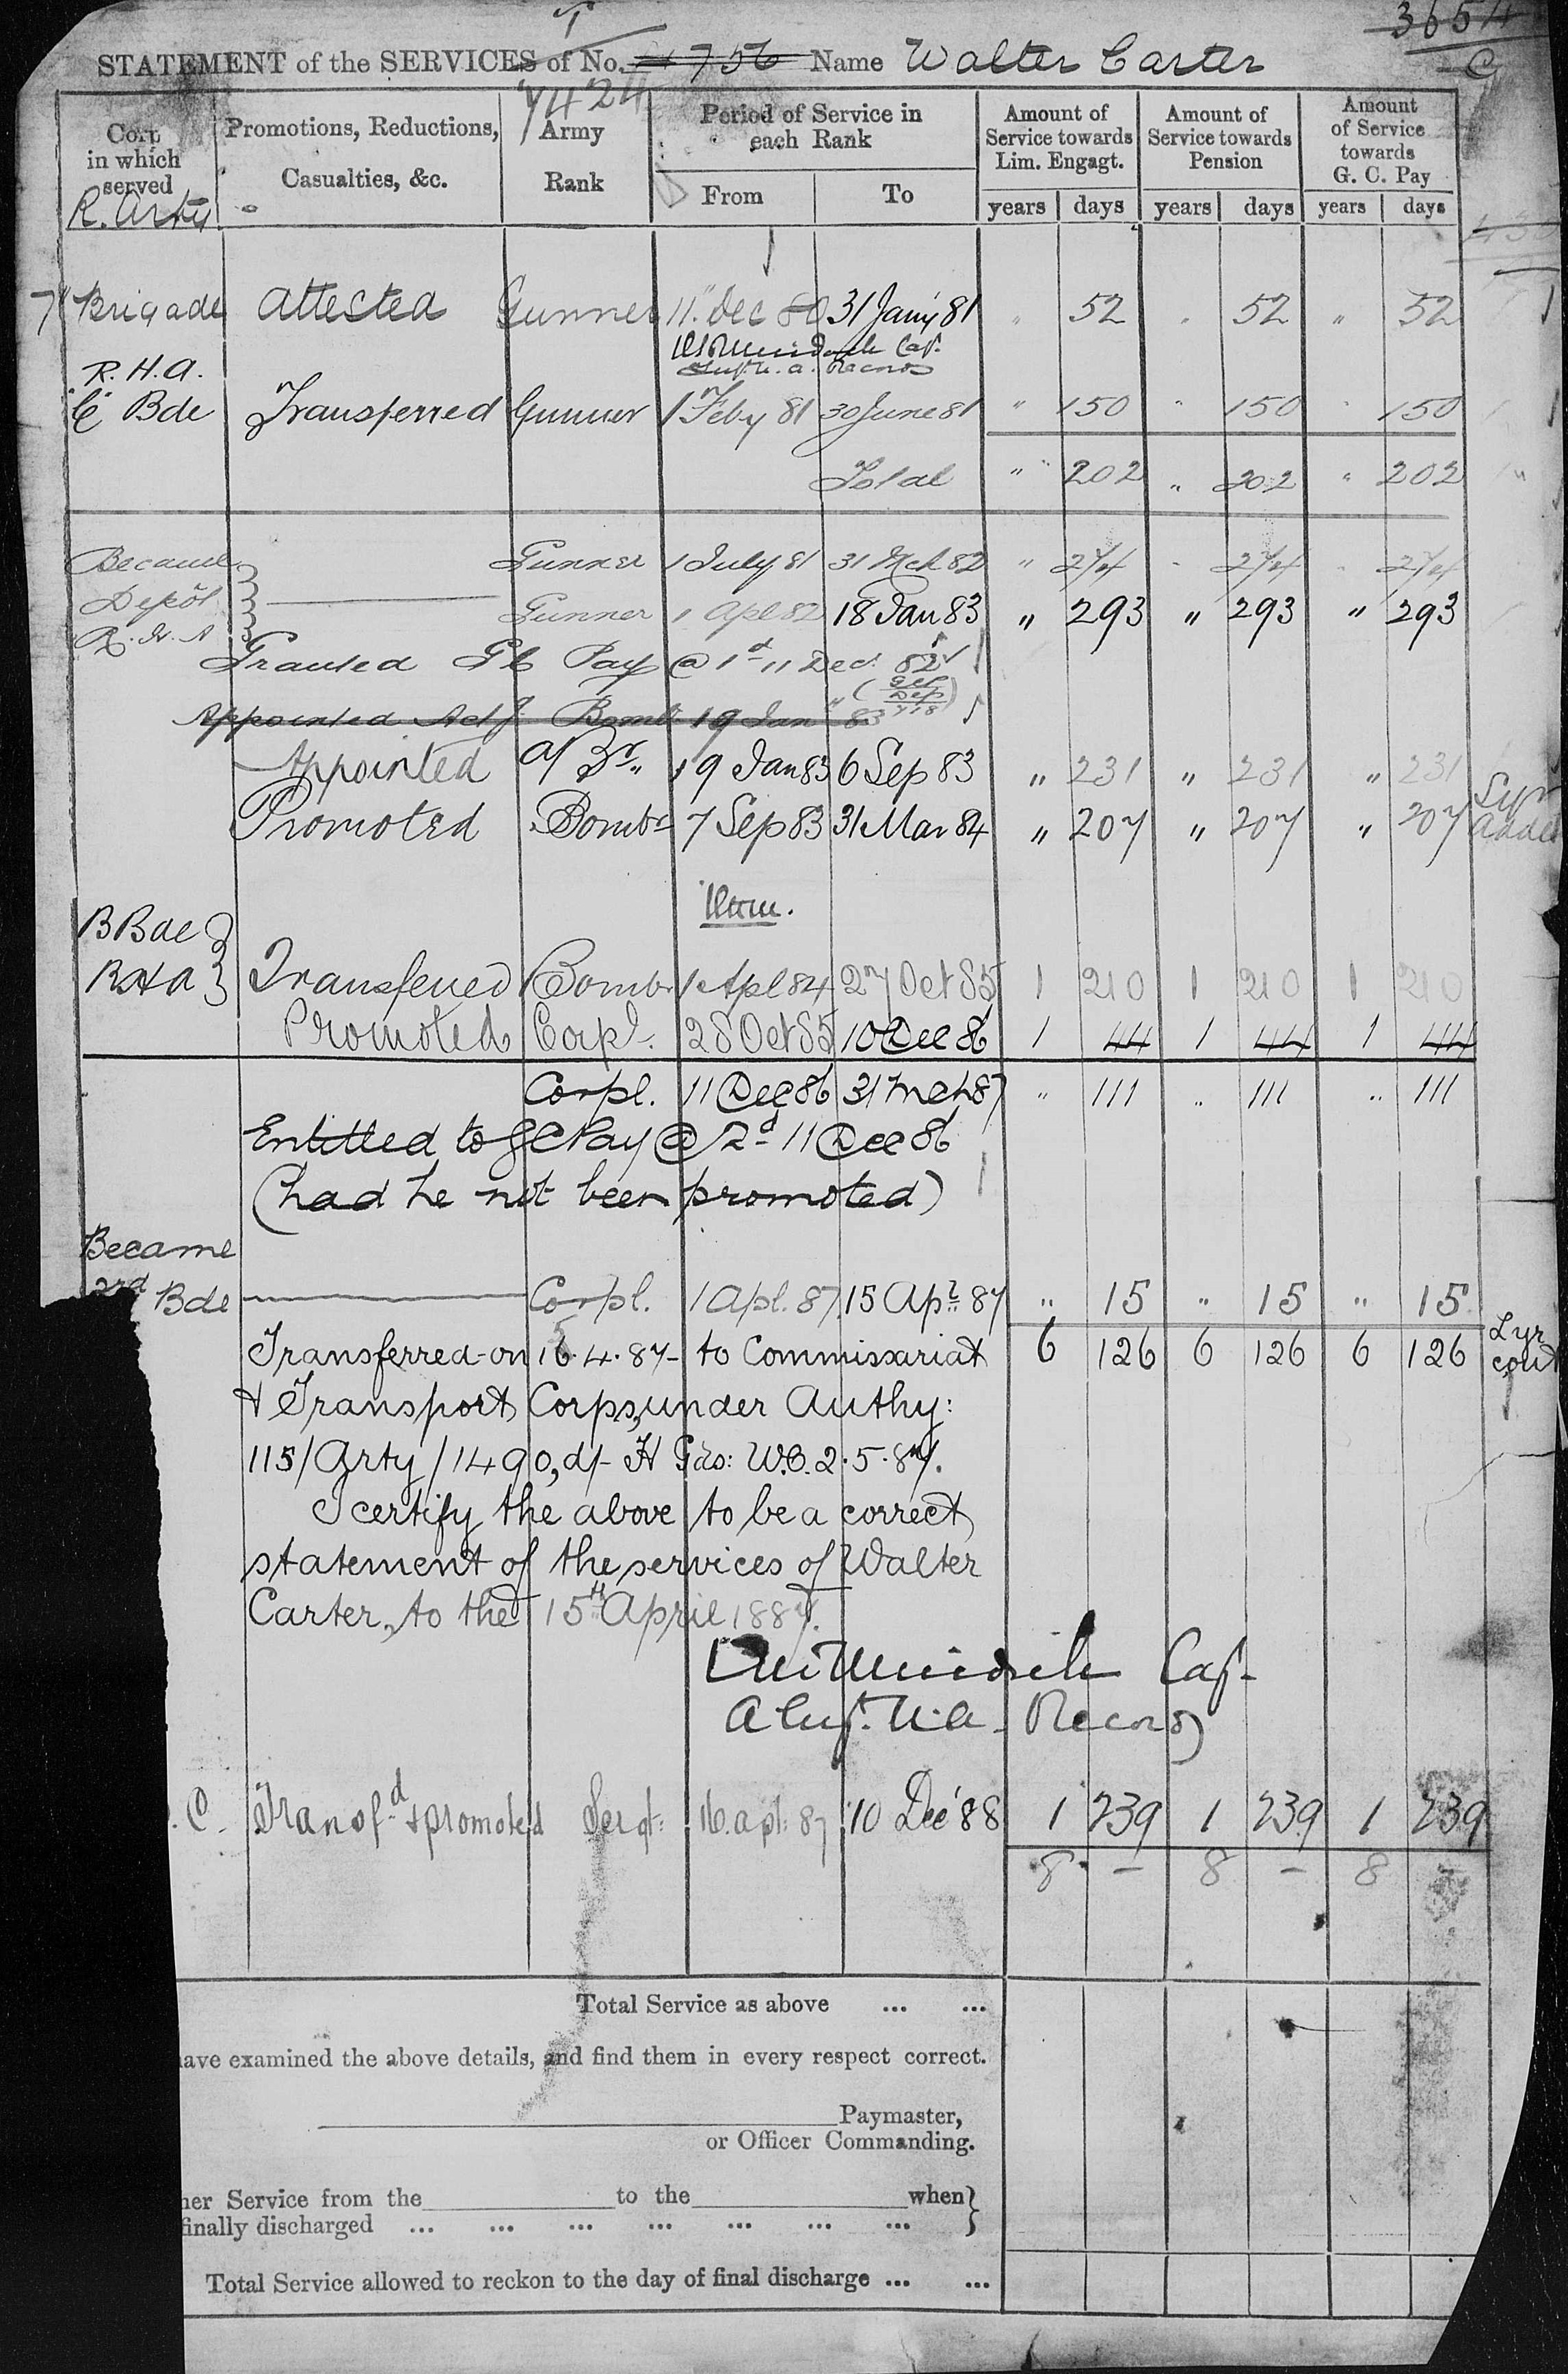 3654
T
STATEMENT of the SERVICES of No. 756 Name Walter Carter
C
7424
Corps in which served
Promotions, Reductions, Casualties, &c.
Army Rank
Period of Service in each Rank
From
To
Amount of Service towards Lim. Engagt.
Amount of Service towards Pension
Amount of Service towards G. C. Pay
years days years days years days
R. Arty
7th Brigade Attested Gunner 11 Dec 80 31 Jany 81 " 52 " 52 " 52
Cap.
Records
R.H.A.
"C" Bde Transferred Gunner 1 Feby 81 30 June 81 " 150 " 150 " 150
Total " 202 " 202 " 202
Became Gunner 1 July 81 31 Mch 82 " 274 " 274 " 274
Depôt
Gunner 1 Apl 82 18 Jan 83 " 293 " 293 " 293
R.H.A
Granted GC Pay @ 1d 11 Decr 82
Appointed Actg Bombr 19 Jan 83
Appointed A/Br. 19 Jan 83 6 Sep 83 " 231 " 231 " 231
Promoted Bombr 7 Sep 83 31 Mar 84 " 207 " 207 " 207
B Bde
RHA Transferred Bombr 1 Apl 84 27 Oct 85 1 210 1 210 1 210
Promoted Corpl. 28 Oct 85 10 Dec 86 1 44 1 44 1 44
Corpl. 11 Dec 86 31 Mch 87 " 111 " 111 " 111
Entitled to GC Pay @ 2d 11 Dec 86
(had he not been promoted)
Became
2nd Bde Corpl. 1 Apl. 87 15 Apl 87 " 15 " 15 " 15
Transferred on 16.4.87 - to Commissariat 6 126 6 126 6 126
& Transport Corps, under Authy:
115/Arty/1490, d/- H Gds: W.O. 2.5.87.
I certify the above to be a correct
statement of the services of Walter
Carter, to the 15th April 1887.
Cap.
Records
C. Transfd & promoted Sergt: 16. apl: 87 10 Dec '88 1 239 1 239 1 239
8 - 8 - 8 -
Total Service as above ... ...
have examined the above details, and find them in every respect correct.
Paymaster,
or Officer Commanding.
her Service from the to the when }
finally discharged ... ... ... ... ... ... ...
Total Service allowed to reckon to the day of final discharge ... ...